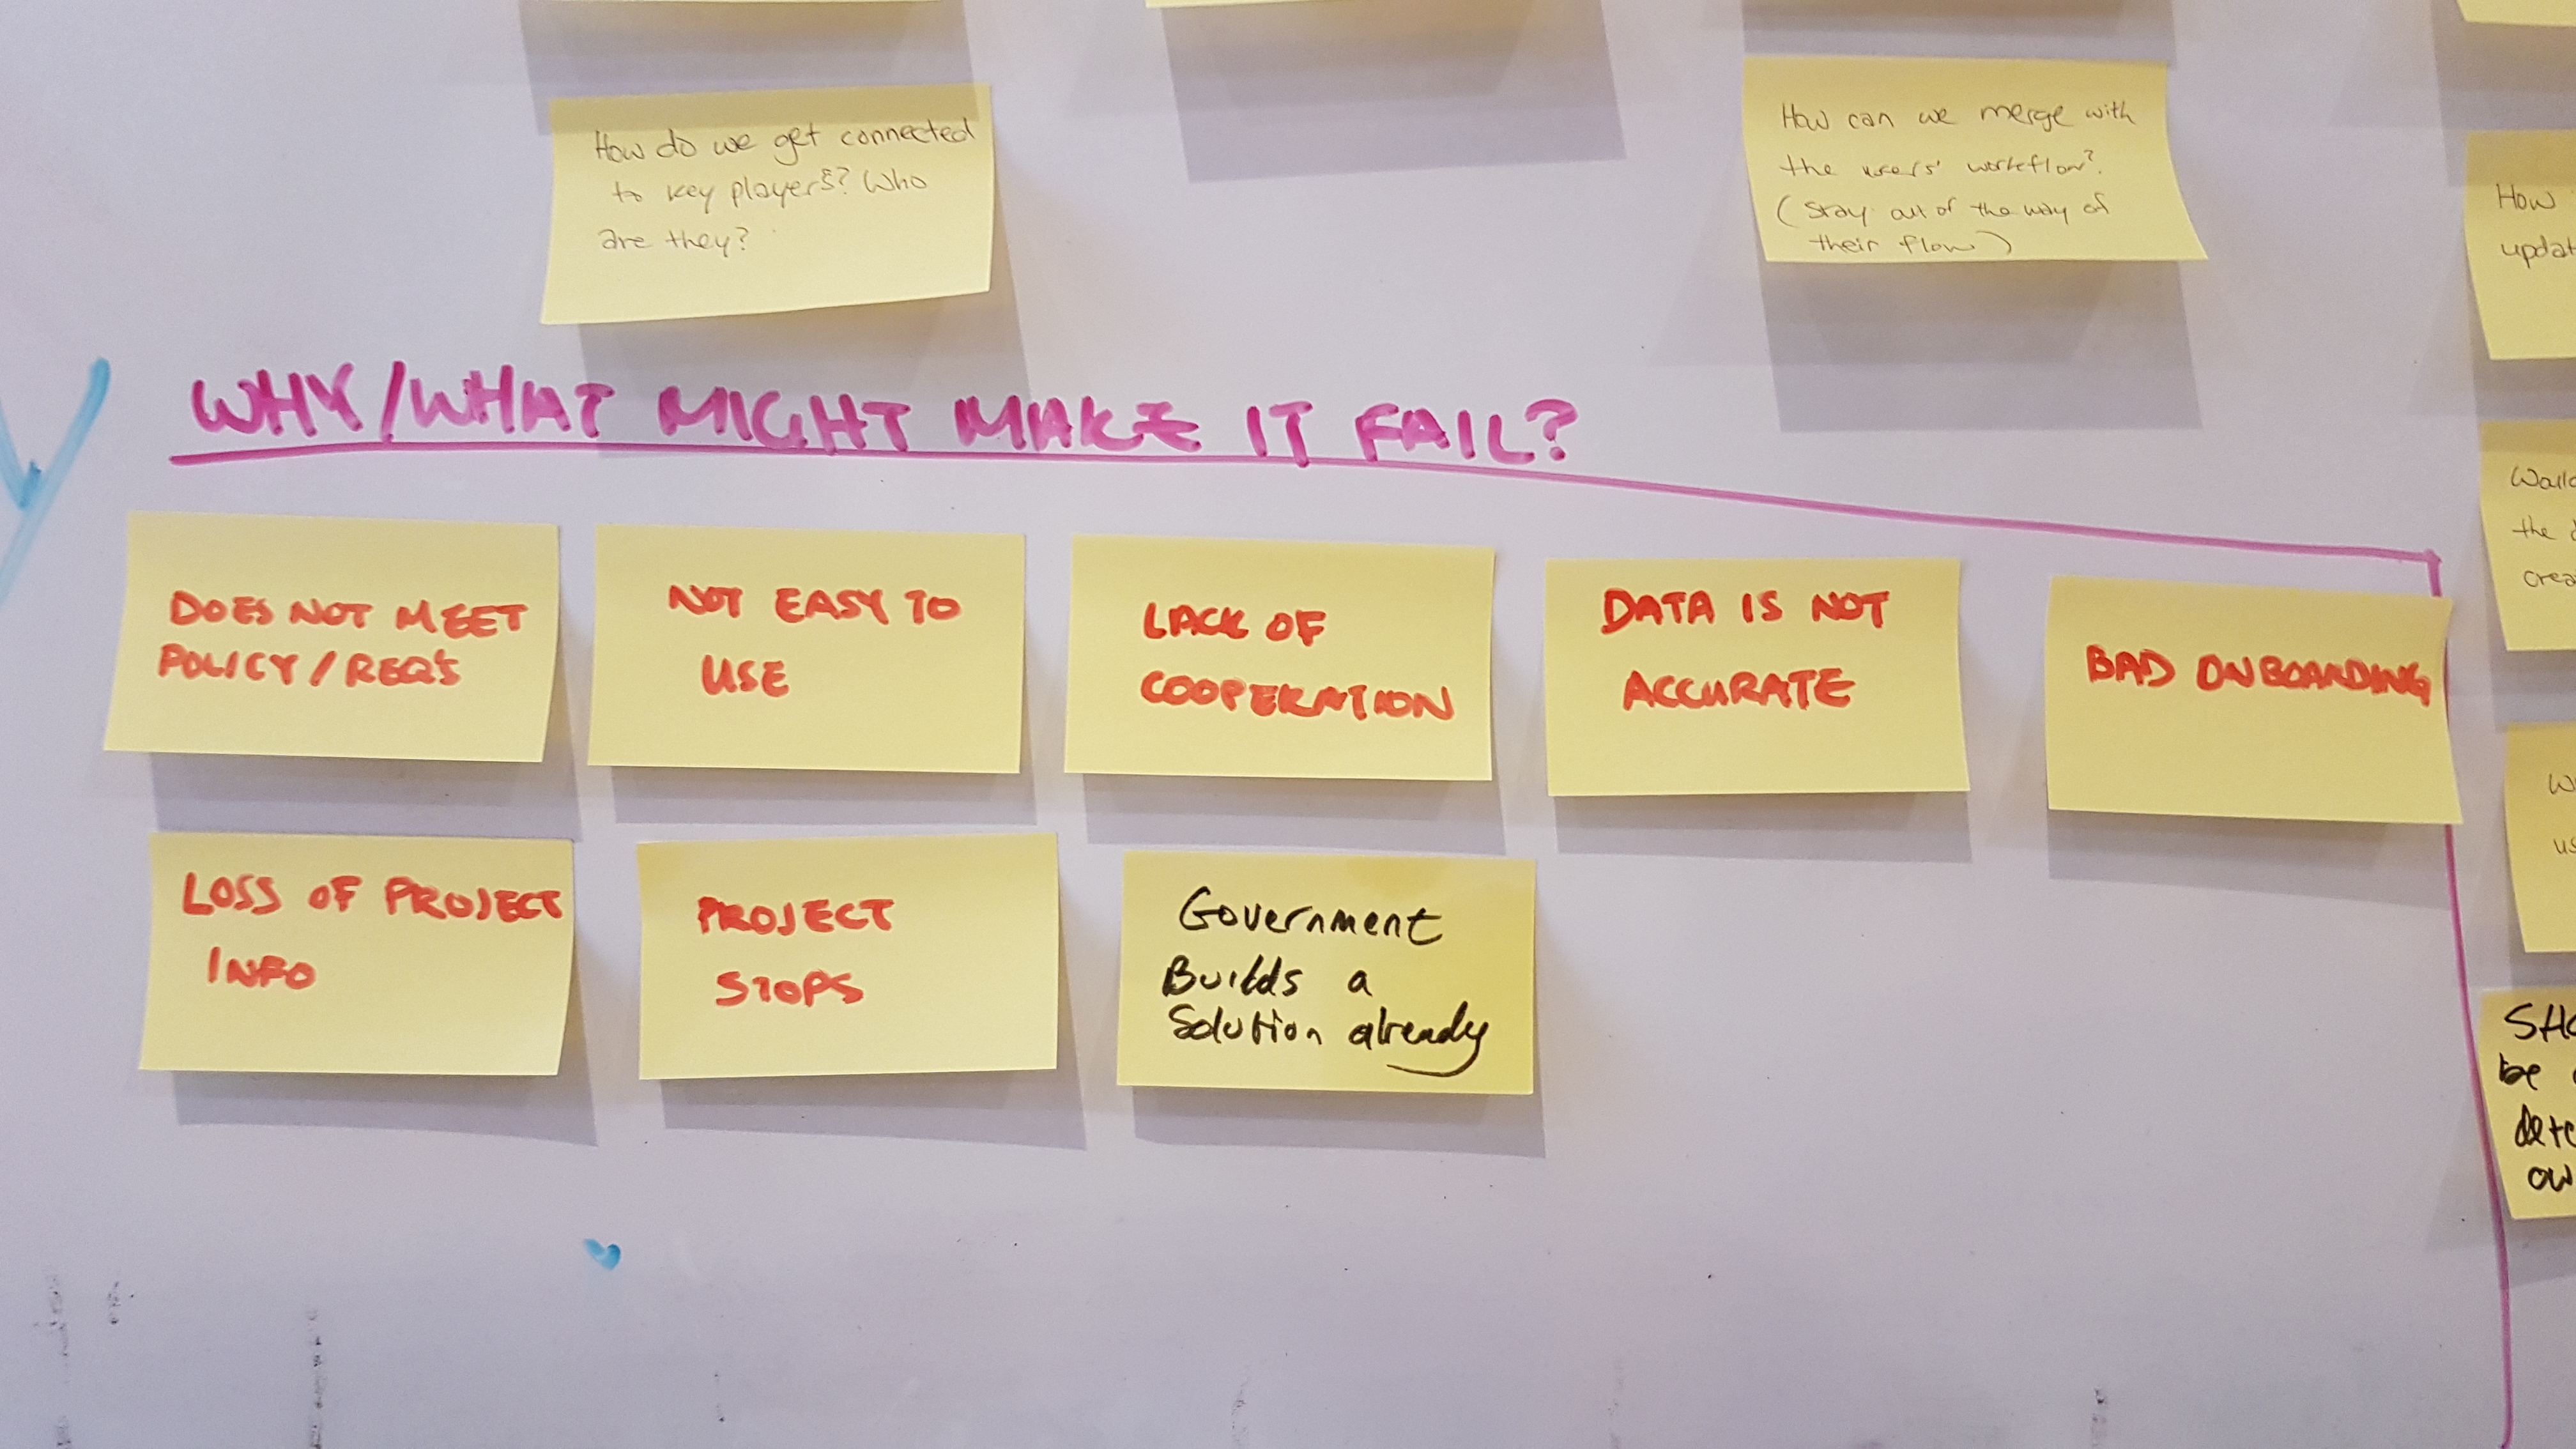 How do we get connected
to key players? Who
are they?
How can we merge with
the users' workflow?
(Stay out of the way of
their flow)
How
WHY/WHAT MIGHT MAKE IT FAIL?
DOES NOT MEET
POLICY/REQ'S
NOT EASY TO
USE
LACK OF
COOPERATION
DATA IS NOT
ACCURATE
BAD ONBOARDING
LOSS OF PROJECT
INFO
PROJECT
STOPS
Government
Builds a
Solution already
the
be